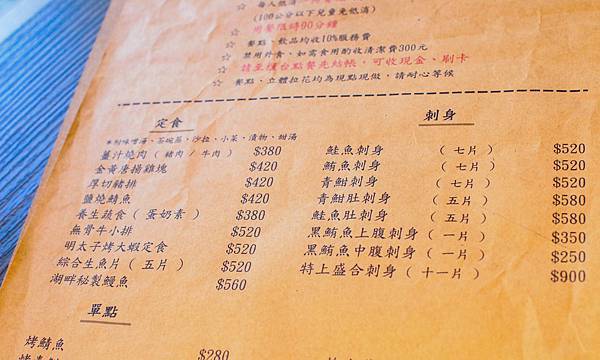 ☆ 每人低消
(100公分以下兒童免低消)
☆ 用餐限時90分鐘
☆ 餐點、飲品均收10%服務費
☆ 禁用外食，如需食用酌收清潔費300元
☆ 請至櫃台點餐先結帳，可收現金、刷卡
☆ 餐點、立體拉花均為現點現做，請耐心等候
定食
*附味噌湯、茶碗蒸、沙拉、小菜、漬物、甜湯
薑汁燒肉（豬肉/牛肉） $380
金黃唐揚雞塊 $420
厚切豬排 $420
鹽燒鯖魚 $420
養生蔬食（蛋奶素） $380
無骨牛小排 $520
明太子烤大蝦定食 $520
綜合生魚片（五片） $520
湖畔秘製鰻魚 $560
刺身
鮭魚刺身（七片） $520
鮪魚刺身（七片） $520
青魽刺身（七片） $520
青魽肚刺身（五片） $580
鮭魚肚刺身（五片） $580
黑鮪魚上腹刺身（一片） $350
黑鮪魚中腹刺身（一片） $250
特上盛合刺身（十一片） $900
單點
烤鯖魚
$280